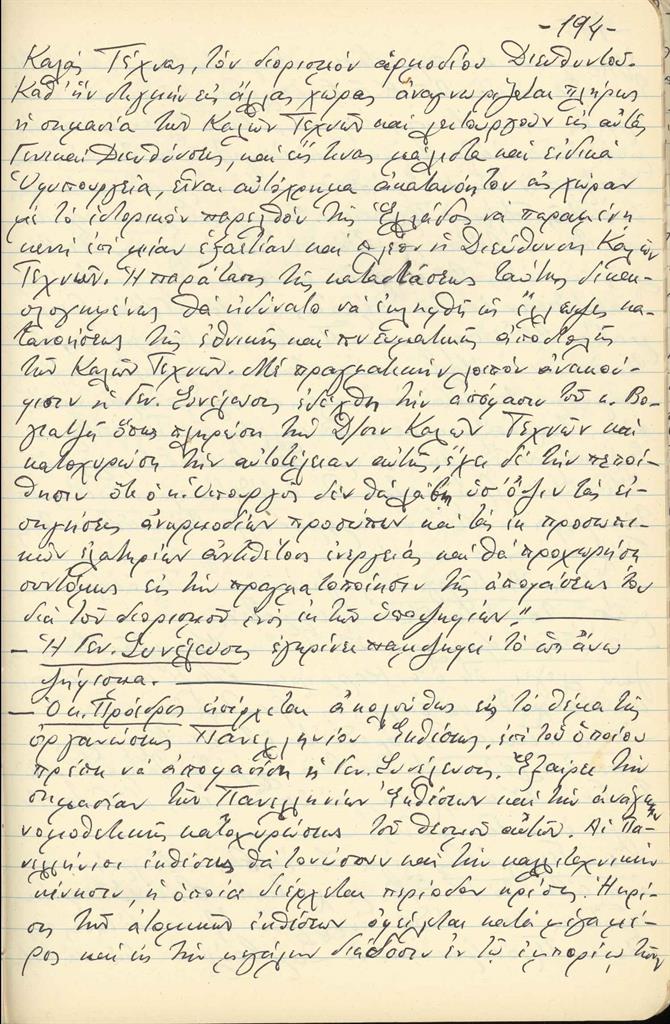 -194-
Καλάς Τέχνας, τόν διορισμόν ἁρμοδίου Διευθυντοῦ.
Καθ' ἥν στιγμήν εἰς ἄλλας χώρας ἀναγνωρίζεται πλήρως
ἡ σημασία τῶν Καλῶν Τεχνῶν καί λειτουργοῦν εἰς αὐτάς
Γενικαί Διευθύνσεις, καί εἴς τινας μάλιστα καί εἰδικά
Ὑφυπουργεῖα, εἶναι αὐτόχρημα ἀκατανόητον εἰς χώραν
μέ τό ἱστορικόν παρελθόν τῆς Ἑλλάδος νά παραμένῃ
κενή ἐπί μίαν ἑξαετίαν καί πλέον ἡ Διεύθυνσις Καλῶν
Τεχνῶν. Ἡ παράτασις τῆς καταστάσεως ταύτης δικαι-
ολογημένως θά ἠδύνατο νά ἐκληφθῇ ὡς ἔλλειψις κα-
τανοήσεως τῆς ἐθνικῆς καί πνευματικῆς ἀποστολῆς
τῶν Καλῶν Τεχνῶν. Μέ πραγματικήν λοιπόν ἀνακού-
φισιν ἡ Γεν. Συνέλευσις ἐδέχθη τήν ἀπόφασιν τοῦ κ. Βο-
γιατζῆ ὅπως πληρώσῃ τήν Δ/σιν Καλῶν Τεχνῶν καί
κατοχυρώσῃ τήν αὐτοτέλειαν αὐτῆς, ἔχει δέ τήν πεποί-
θησιν ὅτι ὁ κ. Ὑπουργός δέν θά λάβῃ ὑπ' ὄψιν τάς εἰ-
σηγήσεις ἀναρμοδίων προσώπων καί τάς ἐκ προσωπι-
κῶν ἐλατηρίων ἀντιθέτους ἐνεργείας καί θά προχωρήσῃ
συντόμως εἰς τήν πραγματοποίησιν τῆς ἀποφάσεώς του
διά τοῦ διορισμοῦ ἑνός ἐκ τῶν ὑποψηφίων."
- Ἡ Γεν. Συνέλευσις ἐγκρίνει παμψηφεί τό ὡς ἄνω
ψήφισμα.
- Ὁ κ. Πρόεδρος εἰσέρχεται ἀκολούθως εἰς τό θέμα τῆς
ὀργανώσεως Πανελληνίου Ἐκθέσεως, ἐπί τοῦ ὁποίου
πρέπει νά ἀποφασίσῃ ἡ Γεν. Συνέλευσις. Ἐξαίρει τήν
σημασίαν τῶν Πανελληνίων Ἐκθέσεων καί τήν ἀνάγκην
νομοθετικῆς κατοχυρώσεως τοῦ θεσμοῦ αὐτῶν. Αἱ Πα-
νελλήνιοι ἐκθέσεις θά τονώσουν καί τήν καλλιτεχνικήν
κίνησιν, ἡ ὁποία διέρχεται περίοδον κρίσης. Ἡ κρί-
σις τῶν ἀτομικῶν ἐκθέσεων ὀφείλεται κατά μέγα μέ-
ρος καί εἰς τήν μεγάλην διάδοσιν ἐν τῷ ἐμπορίῳ τῶν